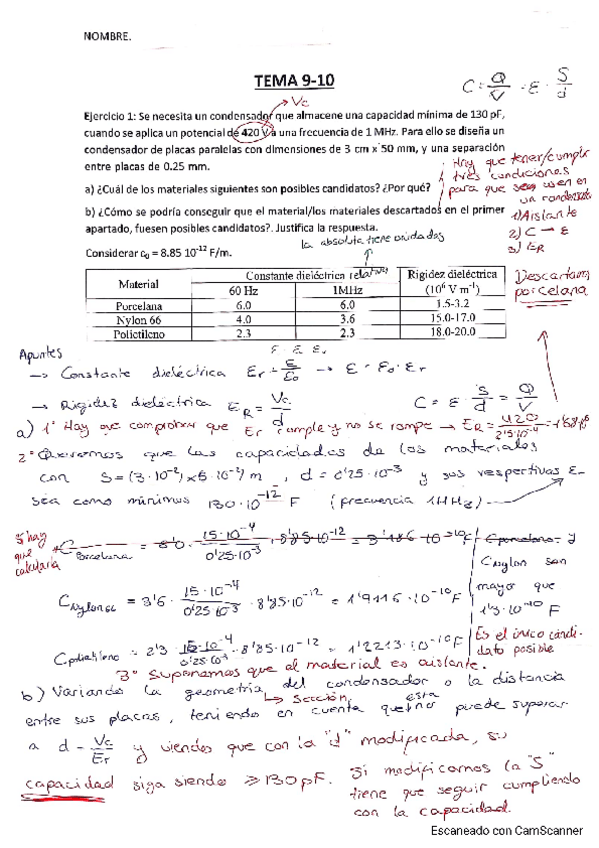 NOMBRE.
TEMA 9-10
C = Q/V = ε · S/d
Vc
Ejercicio 1: Se necesita un condensador que almacene una capacidad mínima de 130 pF,
cuando se aplica un potencial de 420 V a una frecuencia de 1 MHz. Para ello se diseña un
condensador de placas paralelas con dimensiones de 3 cm x 50 mm, y una separación
entre placas de 0.25 mm.
Hay que tener/cumplir
tres condiciones
para que sea buen en
un condensador
1) Aislante
2) C → ε
3) ER
a) ¿Cuál de los materiales siguientes son posibles candidatos? ¿Por qué?
b) ¿Cómo se podría conseguir que el material/los materiales descartados en el primer
apartado, fuesen posibles candidatos?. Justifica la respuesta.
la absoluta tiene unidades
Considerar ε0 = 8.85 10-12 F/m.
Material Constante dieléctrica relativa Rigidez dieléctrica
60 Hz 1MHz (10^6 V m-1)
Porcelana 6.0 6.0 1.5-3.2
Nylon 66 4.0 3.6 15.0-17.0
Polietileno 2.3 2.3 18.0-20.0
Descartamos
porcelana
Apuntes
→ Constante dieléctrica Er = ε/ε0 → ε = ε0 · Er
→ Rigidez dieléctrica ER = Vc/d C = ε · S/d = Q/V
a) 1º Hay que comprobar que Er cumple y no se rompe → ER = 420/2'5·10-4 = 1'68·10^6
2º Queremos que las capacidades de los materiales
con S = (3·10-2)x(5·10-2) m, d = 0'25·10-3 y sus respectivas Er
sea como mínimos 130·10-12 F (frecuencia 1MHz)
Si hay
que
calcularla
C porcelana = 6'0 · 15·10-4/0'25·10-3 · 8'85·10-12 = 3'186·10-10 F
C porcelana y
C nylon son
mayor que
1'3·10-10 F
C nylon 66 = 3'6 · 15·10-4/0'25·10-3 · 8'85·10-12 = 1'9116·10-10 F
Es el único candi-
dato posible
C polietileno = 2'3 · 15·10-4/0'25·10-3 · 8'85·10-12 = 1'2213·10-10 F
3º Suponemos que el material es aislante.
b) Variando la geometría del condensador o la distancia
↳ Sección
entre sus placas, teniendo en cuenta que esta no puede superar
a d = Vc/Er y viendo que con la "d" modificada, su
capacidad siga siendo ≥ 130 pF.
Si modificamos la "S"
tiene que seguir cumpliendo
con la capacidad.
Escaneado con CamScanner